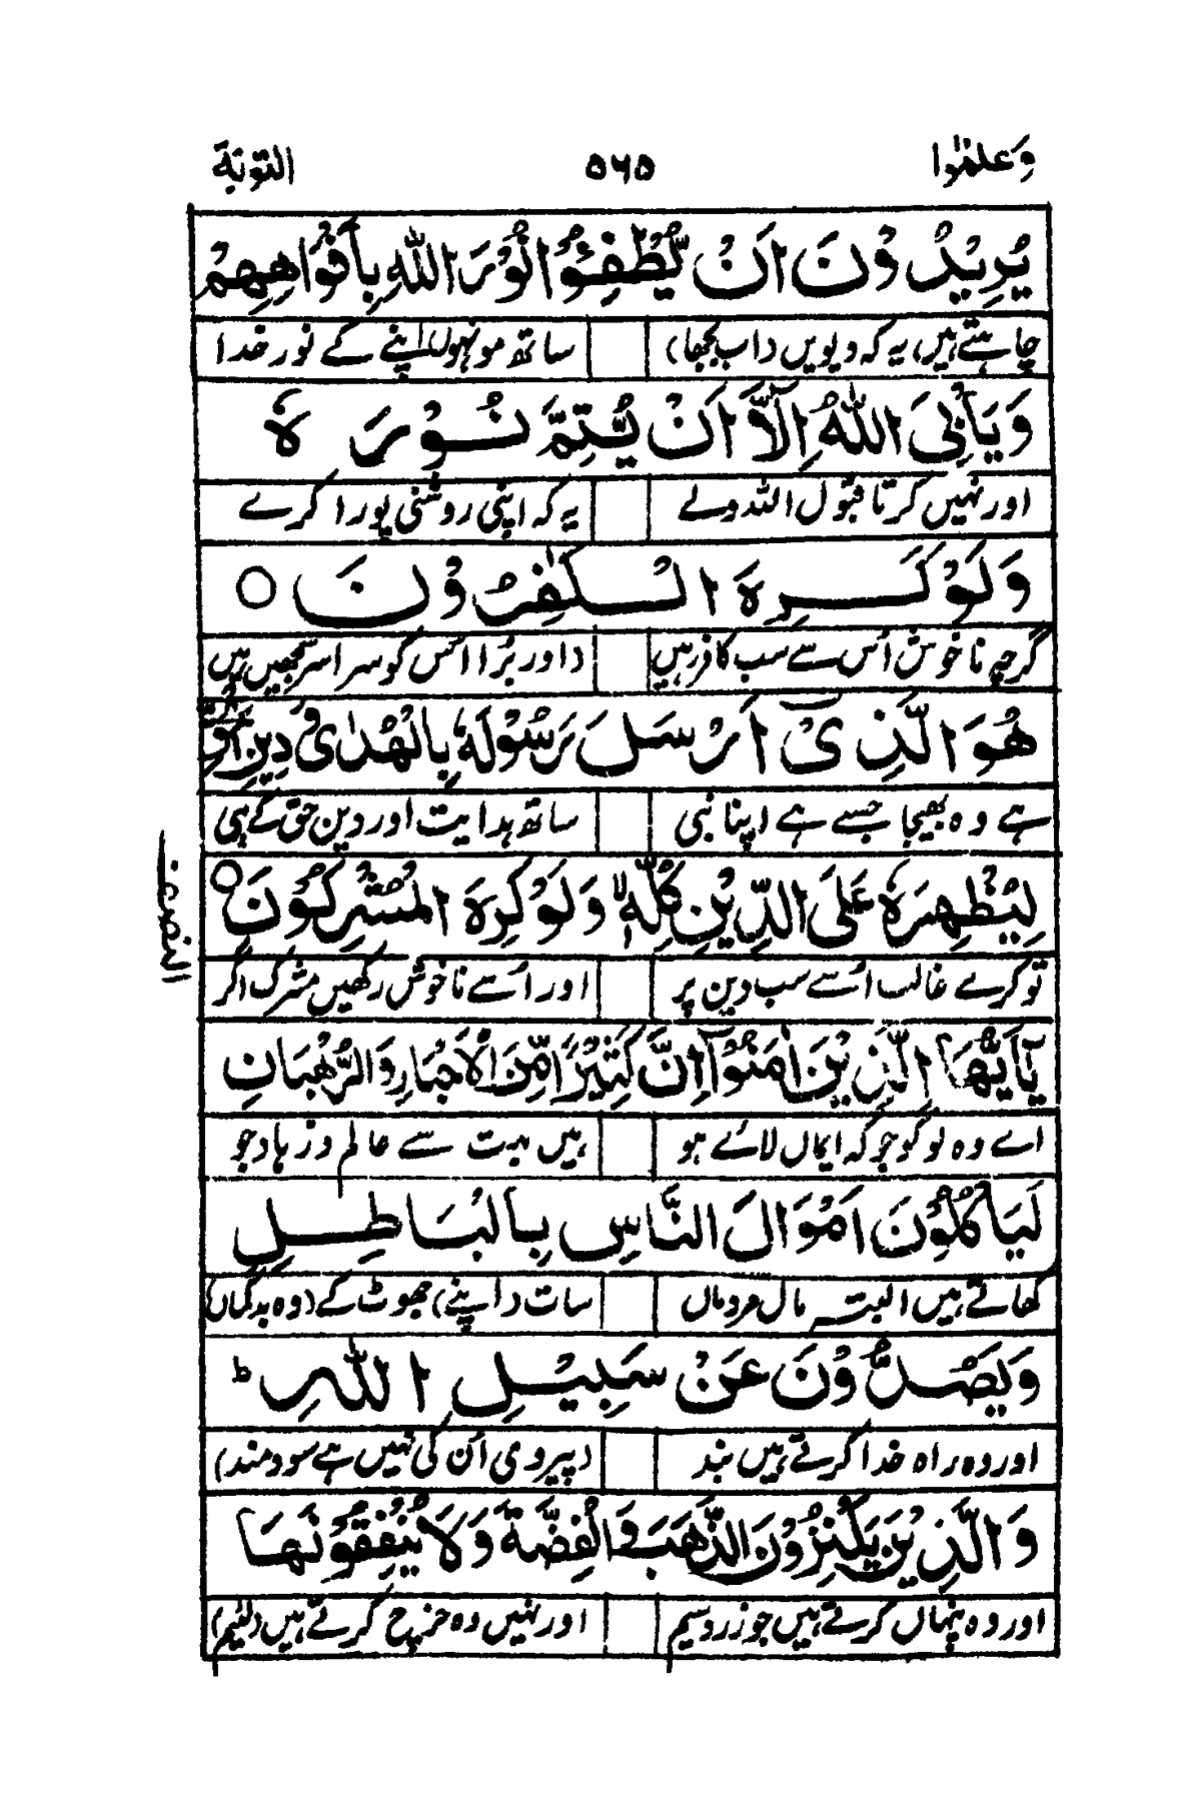 وَعلمٰوا ۵۶۵ التوبة
يُرِيْدُوْنَ اَنْ يُّطْفِـُٔوْا نُوْرَ اللّٰهِ بِاَفْوَاهِهِمْ
چاہتے ہیں، یہ کہ دیویں داب بجھا) ساتھ مونہوں اپنے کے نور خدا
وَيَاْبَى اللّٰهُ اِلَّآ اَنْ يُّتِمَّ نُوْرَهٗ
اور نہیں کرتا قبول اللہ ولے یہ کہ اپنی روشنی پورا کرے
وَلَوْ كَرِهَ الْكٰفِرُوْنَ ○
گرچہ ناخوش اُس سے سب کافر ہیں داور بُرا اس کو سراسر سمجھیں ہیں
هُوَ الَّذِيْٓ اَرْسَلَ رَسُوْلَهٗ بِالْهُدٰى وَدِيْنِ الْحَقِّ
ہے وہ بھیجا جسے ہے اپنا نبی ساتھ ہدایت اور دین حق کے ہی
لِيُظْهِرَهٗ عَلَى الدِّيْنِ كُلِّهٖ ۙ وَلَوْ كَرِهَ الْمُشْرِكُوْنَ ○
النصف
تو کرے غالب اُسے سب دین پر اور اُسے ناخوش رکھیں مشرک اگر
يٰٓاَيُّهَا الَّذِيْنَ اٰمَنُوْٓا اِنَّ كَثِيْرًا مِّنَ الْاَحْبَارِ وَالرُّهْبَانِ
اے وہ لوگو جو کہ ایماں لائے ہو ہیں بہت سے عالم و زہاد جو
لَيَاْكُلُوْنَ اَمْوَالَ النَّاسِ بِالْبَاطِلِ
کھاتے ہیں البتہ مال مردماں سات داپنے) جھوٹ کے (وہ بدگماں)
وَيَصُدُّوْنَ عَنْ سَبِيْلِ اللّٰهِ ط
اور وہ راہ خدا کرتے ہیں بند (پیروی اُن کی نہیں ہے سودمند)
وَالَّذِيْنَ يَكْنِزُوْنَ الذَّهَبَ وَالْفِضَّةَ وَلَا يُنْفِقُوْنَهَا
اور وہ پنہاں کرتے ہیں جو زر و سیم اور نہیں وہ خرچ کرتے ہیں (لئیم)